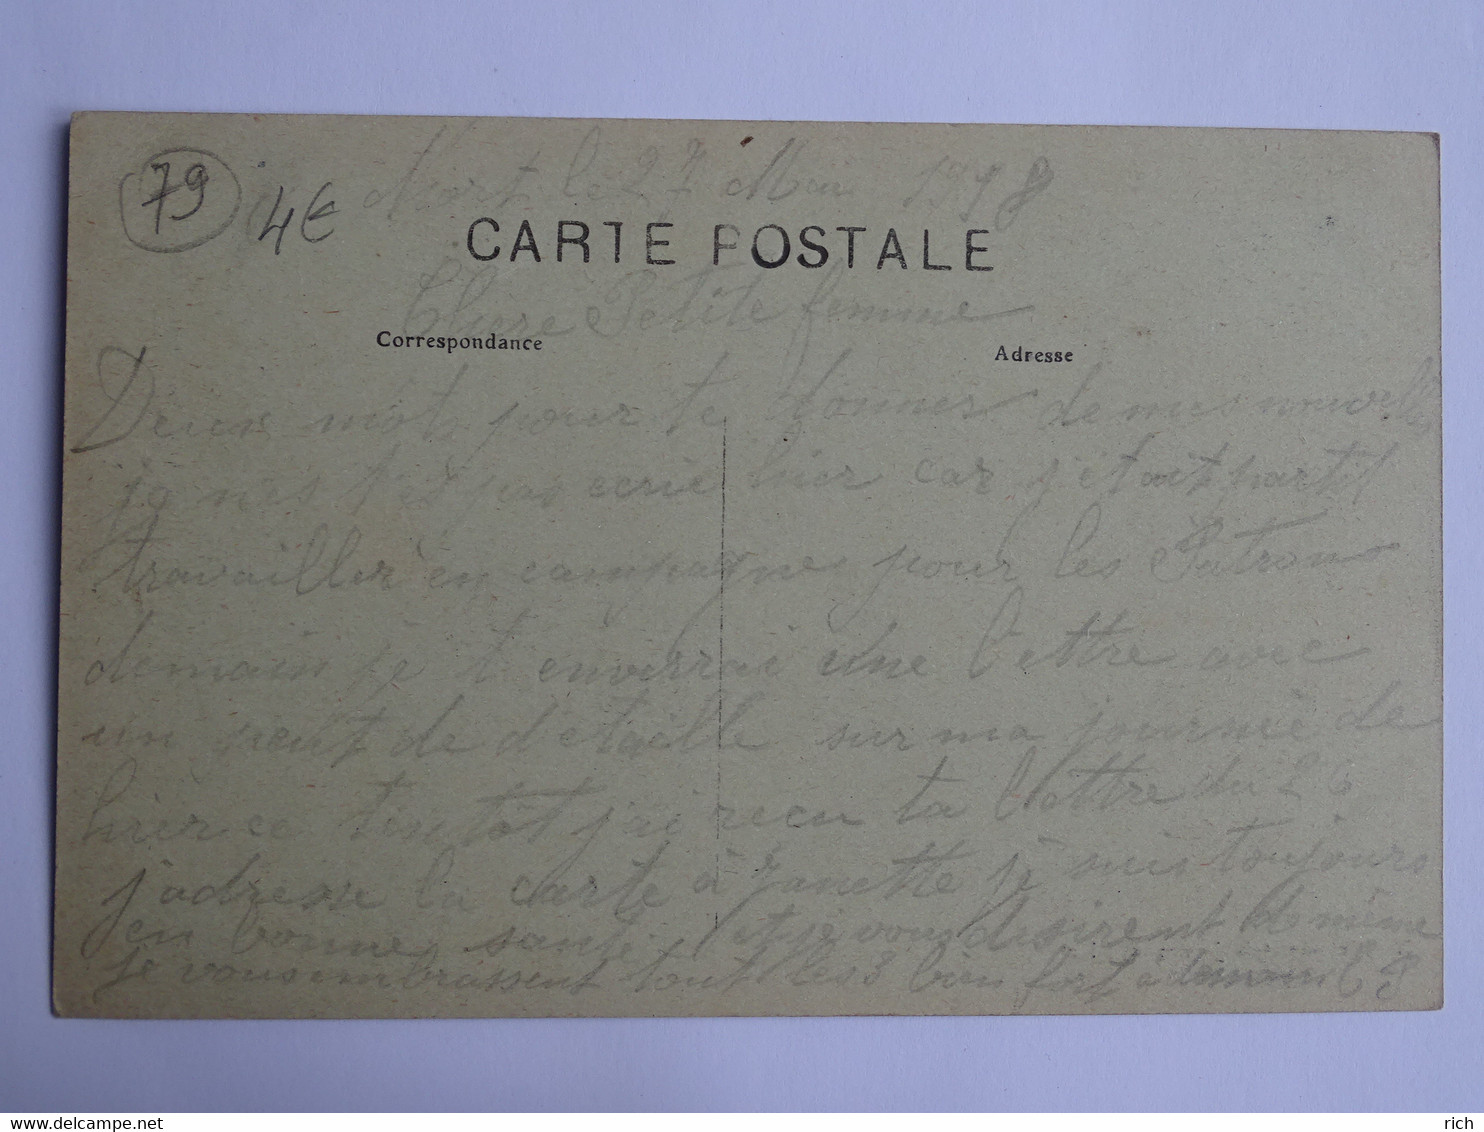 Niort le 27 Mai 1918
79
4€
CARTE POSTALE
Chere Petite femme
Correspondance
Adresse
Deux mots pour te donner de mes nouvelles
je nes t'es pas ecrie hier car j'etait parti
travailler en campagne pour les Patron
demain je t'enverrai une lettre avec
un peut de detaille sur ma journée de
hier ce tentôt j'ai recu ta lettre du 26
j'adresse la carte à Janette je suis toujours
en bonne santé et je vous desirent de même
je vous embrassent tout les 3 bien fort à demain
www.delcampe.net
rich